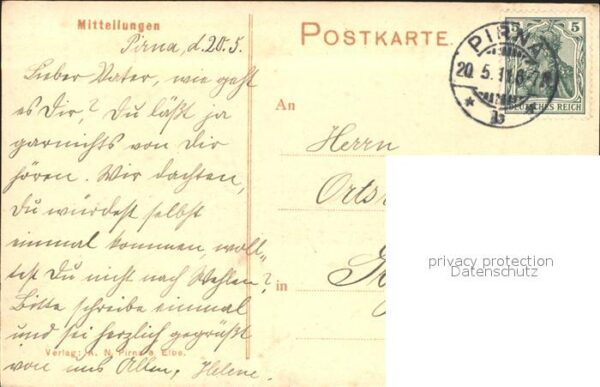 Mitteilungen
Pirna, d. 20. 5.
Lieber Vater, wie geht
es Dir? Du läßt ja
garnichts von Dir
hören. Wir dachten,
Du würdest selbst
einmal kommen, woll-
test Du nicht nach Wehlen?
Bitte schreibe einmal
und sei herzlich gegrüßt
Verlag: A. N. Pirna a. Elbe.
von uns Allen, Helene.
POSTKARTE.
PIRNA
20. 5. 11. 6-7
* b *
5
DEUTSCHES REICH
An
Herrn
Orts
in
privacy protection
Datenschutz